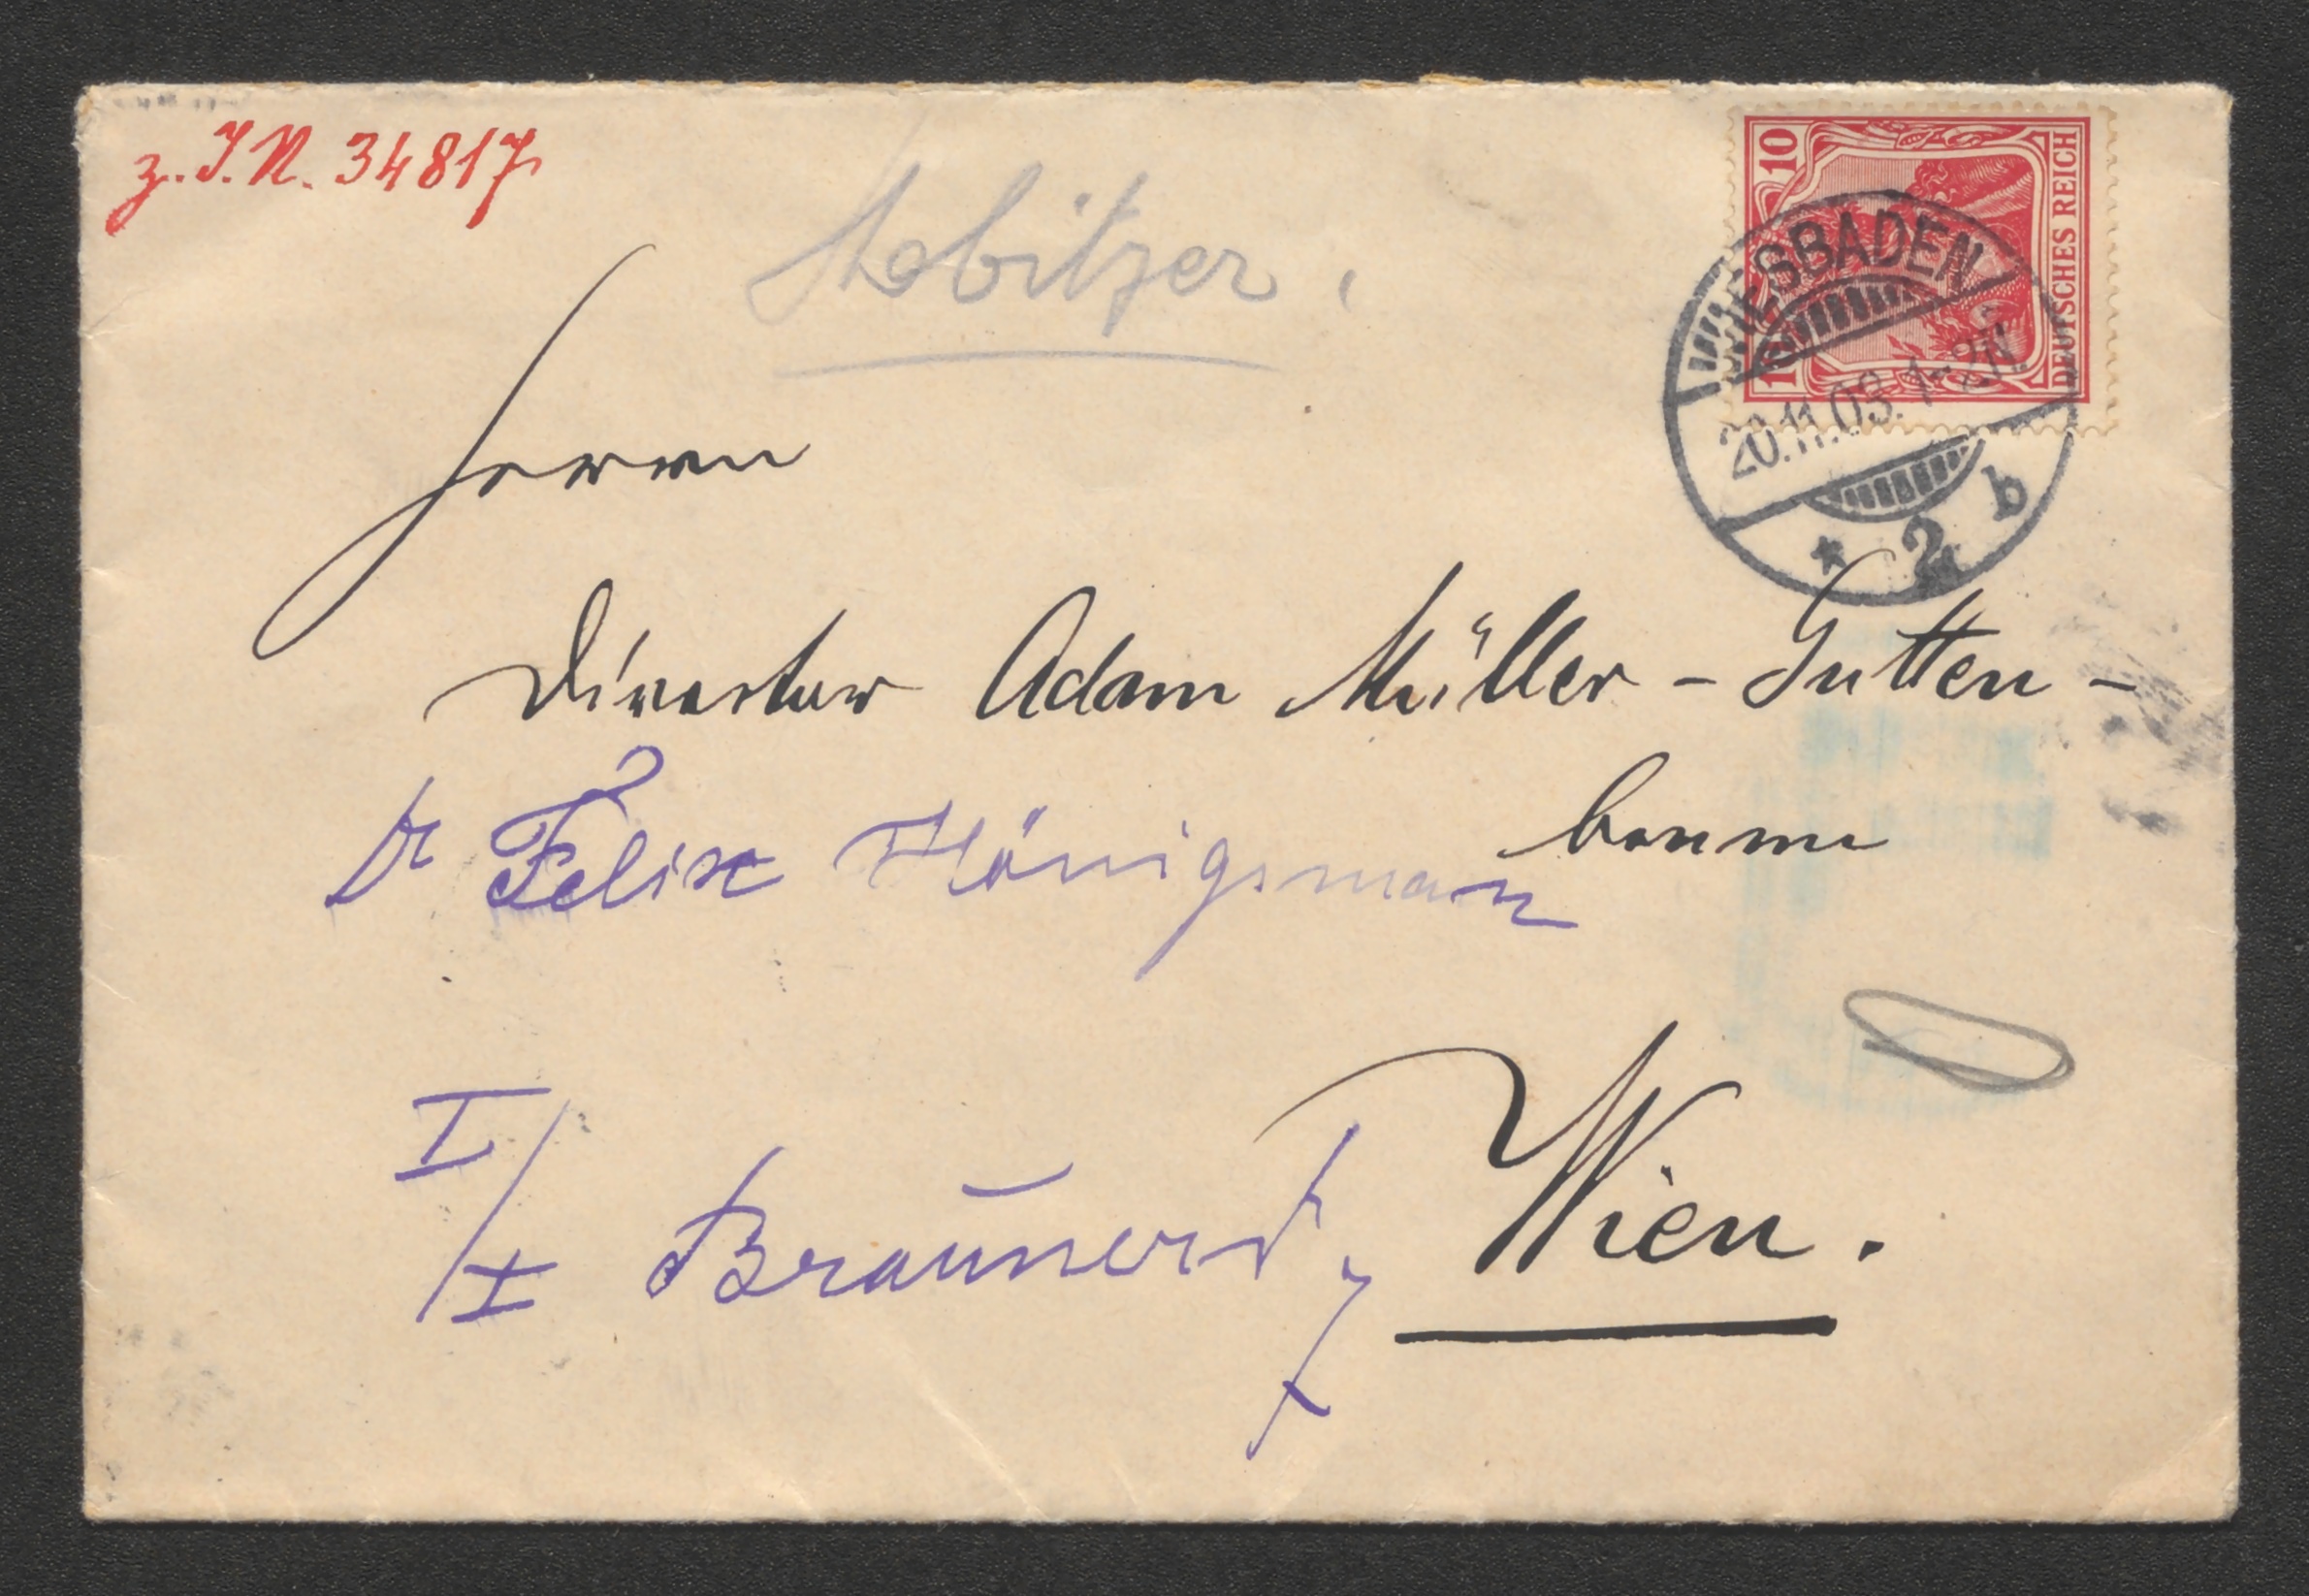 z. I. N. 34817
Stobitzer.
10
DEUTSCHES REICH
WIESBADEN
20.11.03. 1-2N.
* 2 b
Herrn
Director Adam Müller-Gutten-
brunn
Dr Felix Königsman
Wien.
I/I Braunerst, 7